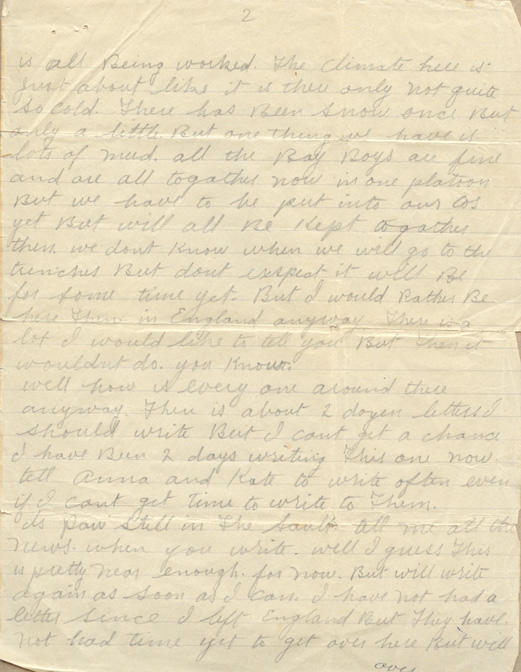 2
is all Being worked. The climate here is
just about like it is there only not quite
so cold. There has Been snow once But
only a little But one thing we have is
lots of mud. all the Bay Boys are fine
and are all togather now in one platoon
But we have to be put into our Cos
yet But will all Be Kept togather
then. we dont Know when we will go to the
trenches But dont exspect it will Be
for some time yet. But I would Rather Be
here Then in England anyway. There is a
lot I would like to tell you But Then it
wouldnt do. you Know.
well how is every one around there
anyway. Then is about 2 dozen letters I
should write But I cant get a chance
I have Been 2 days writing This one now.
tell Anna and Kate to write often even
if I cant get time to write to Them.
Is Paw still in The tell me all the
news. when you write. well I guess This
is pretty near enough. for now. But will write
again as soon as I can. I have not had a
letter since I left England But They have
not had time yet to get over here But will
over